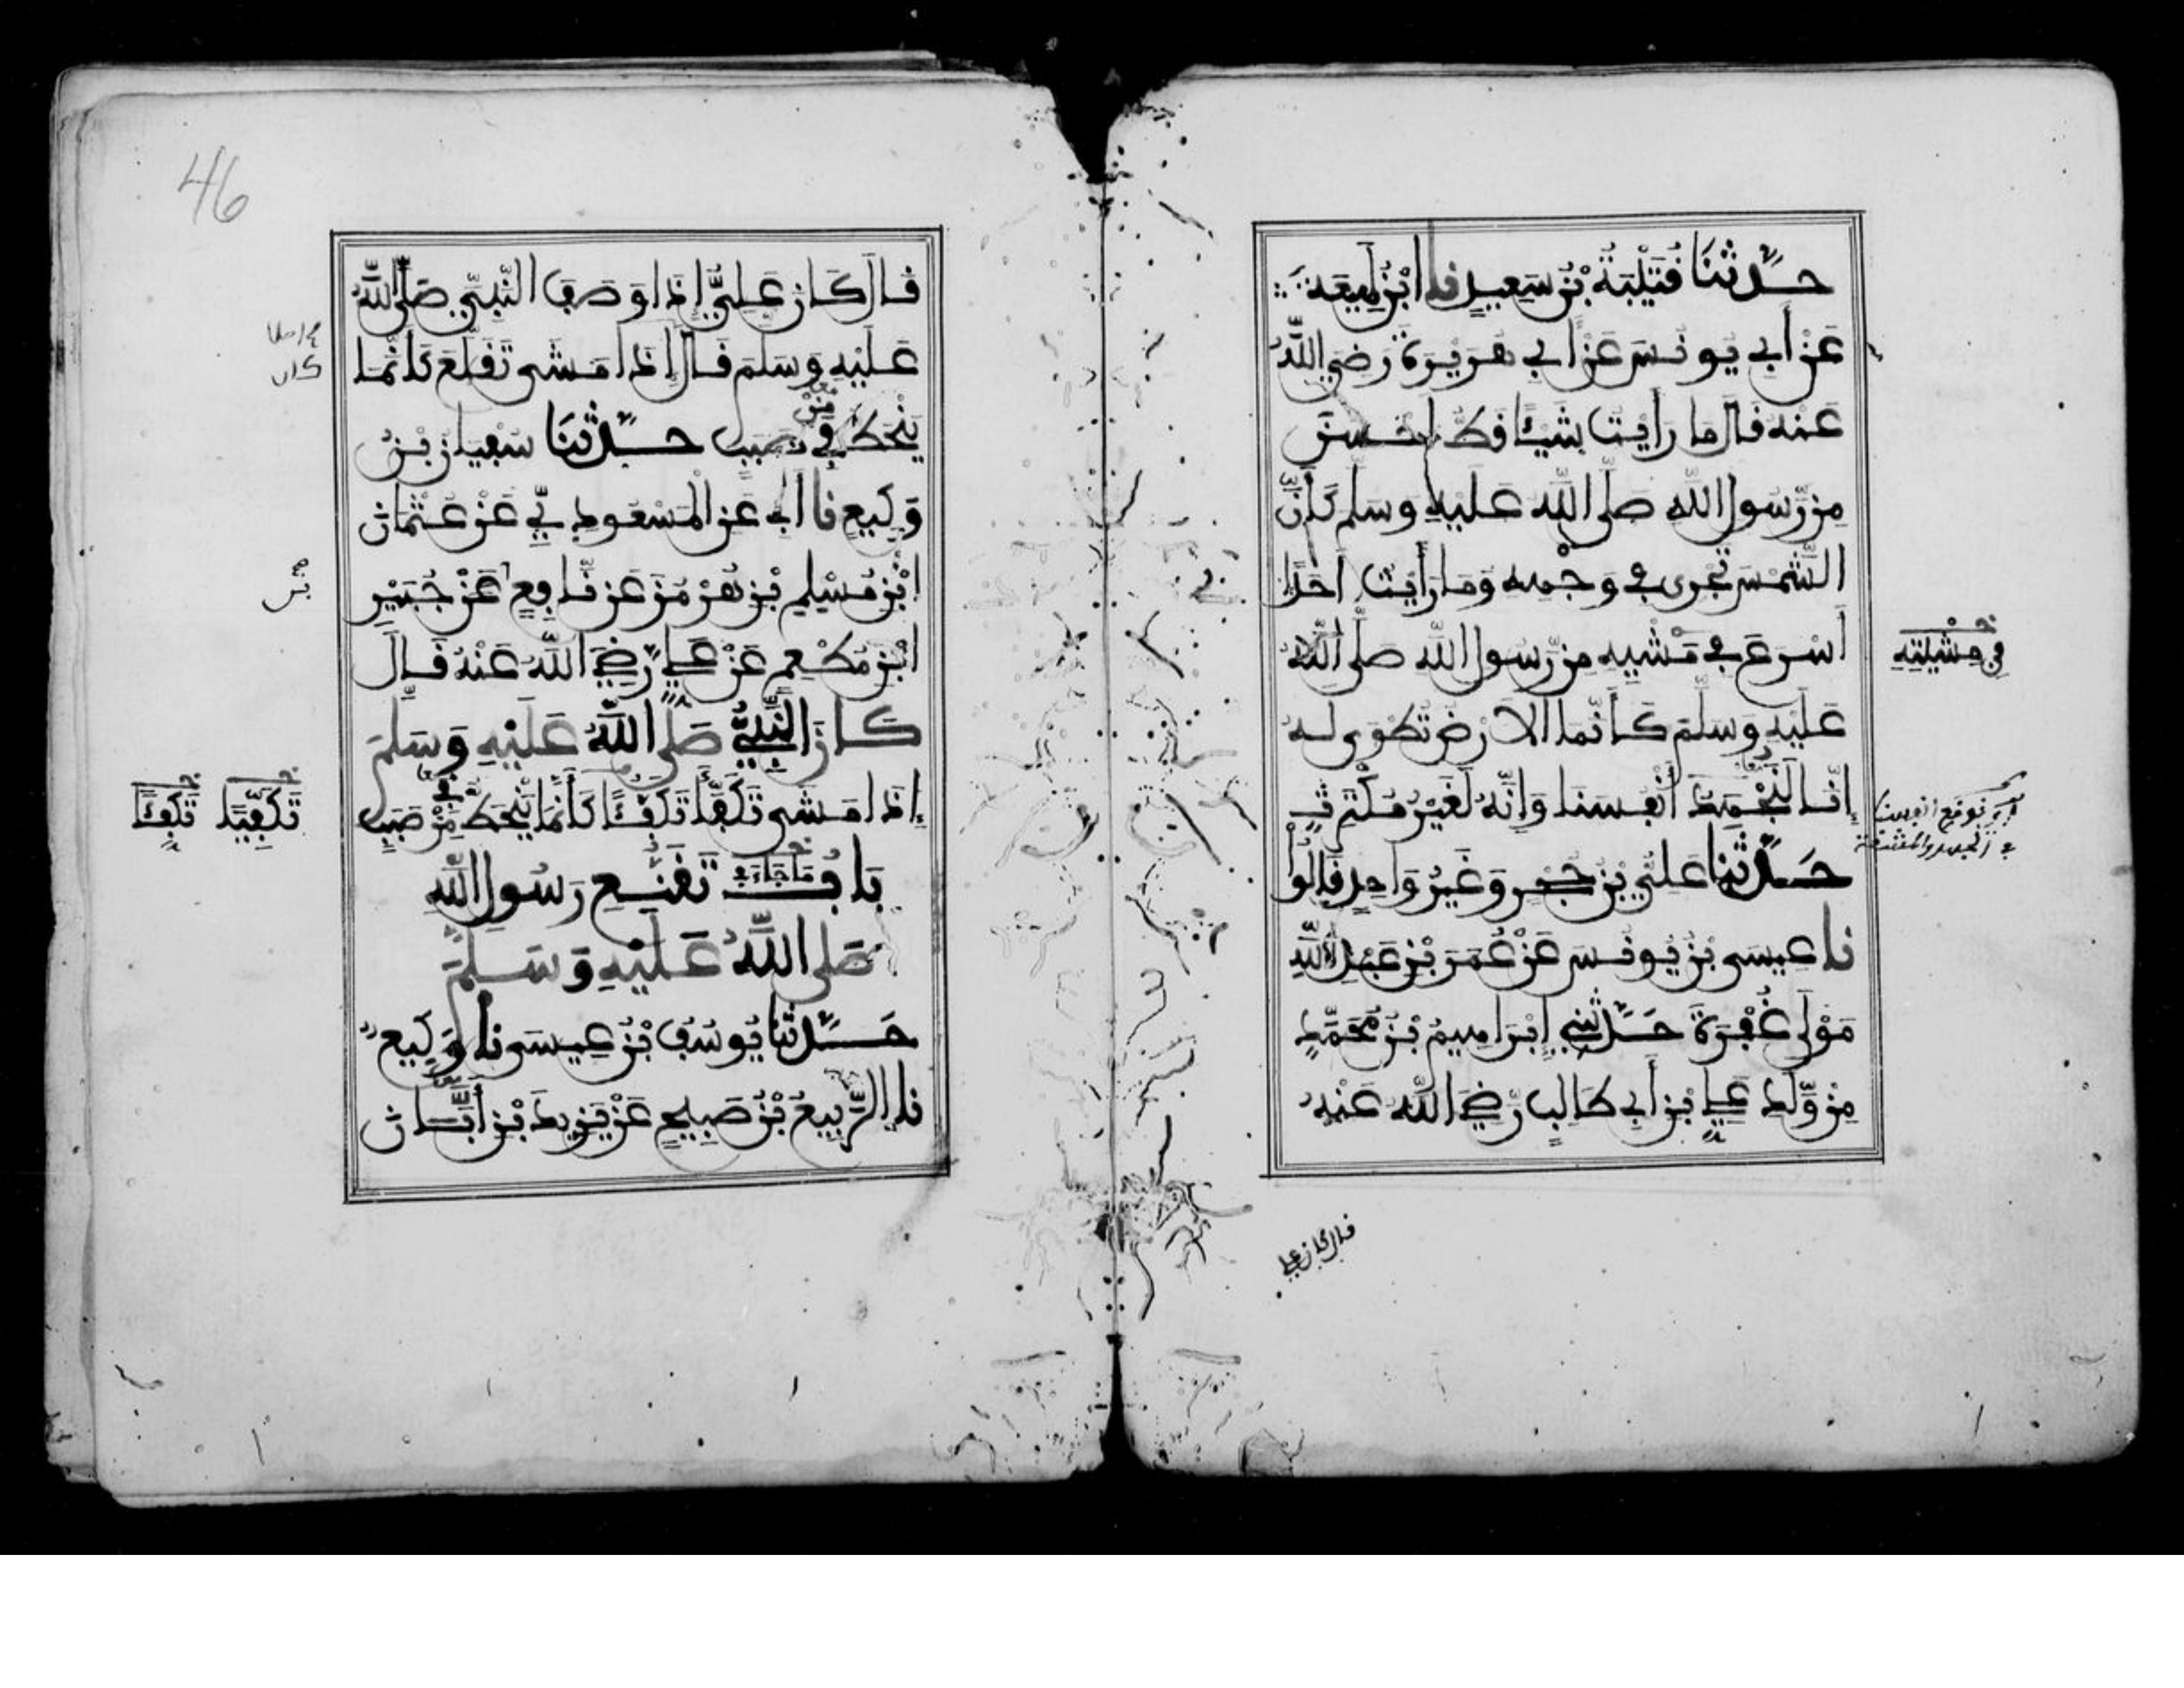 حدثنا قتيبة بن سعيد نا ابن لهيعة
عن أبي يونس عن أبي هريرة رضي الله
عنه قال ما رأيت شيئا قط احسن
من رسول الله صلى الله عليه وسلم كأن
الشمس تجرى في وجهه وما رأيت احدا
أسرع في مشيه من رسول الله صلى الله
في مشيته
عليه وسلم كأنما الارض تطوى له
إنا لنجهد أنفسنا وإنه لغير مكترث
نوقع انفسنا
في الجهد والمشقة
حدثنا علي بن حجر وغير واحد قالوا
نا عيسى بن يونس عن عمر بن عبد الله
مولى غفرة حدثني إبراهيم بن محمد
من ولد علي بن أبي طالب رضي الله عنه
قال كان علي
46
قال كان علي إذا وصف النبي صلى الله
عليه وسلم قال إذا مشى تقلع كأنما
ينحط في صبب حدثنا سفيان بن
من
وكيع نا أبي عن المسعودي عن عثمان
ابن مسلم بن هرمز عن نافع عن جبير
ابن مطعم عن علي رضي الله عنه قال
كان النبي صلى الله عليه وسلم
إذا مشى تكفأ تكفؤا كأنما ينحط من صبب
تكفيا تكفئا
باب ما جاء في تقنع رسول الله
صلى الله عليه وسلم
حدثنا يوسف بن عيسى نا وكيع
نا الربيع بن صبيح عن يزيد بن أبان